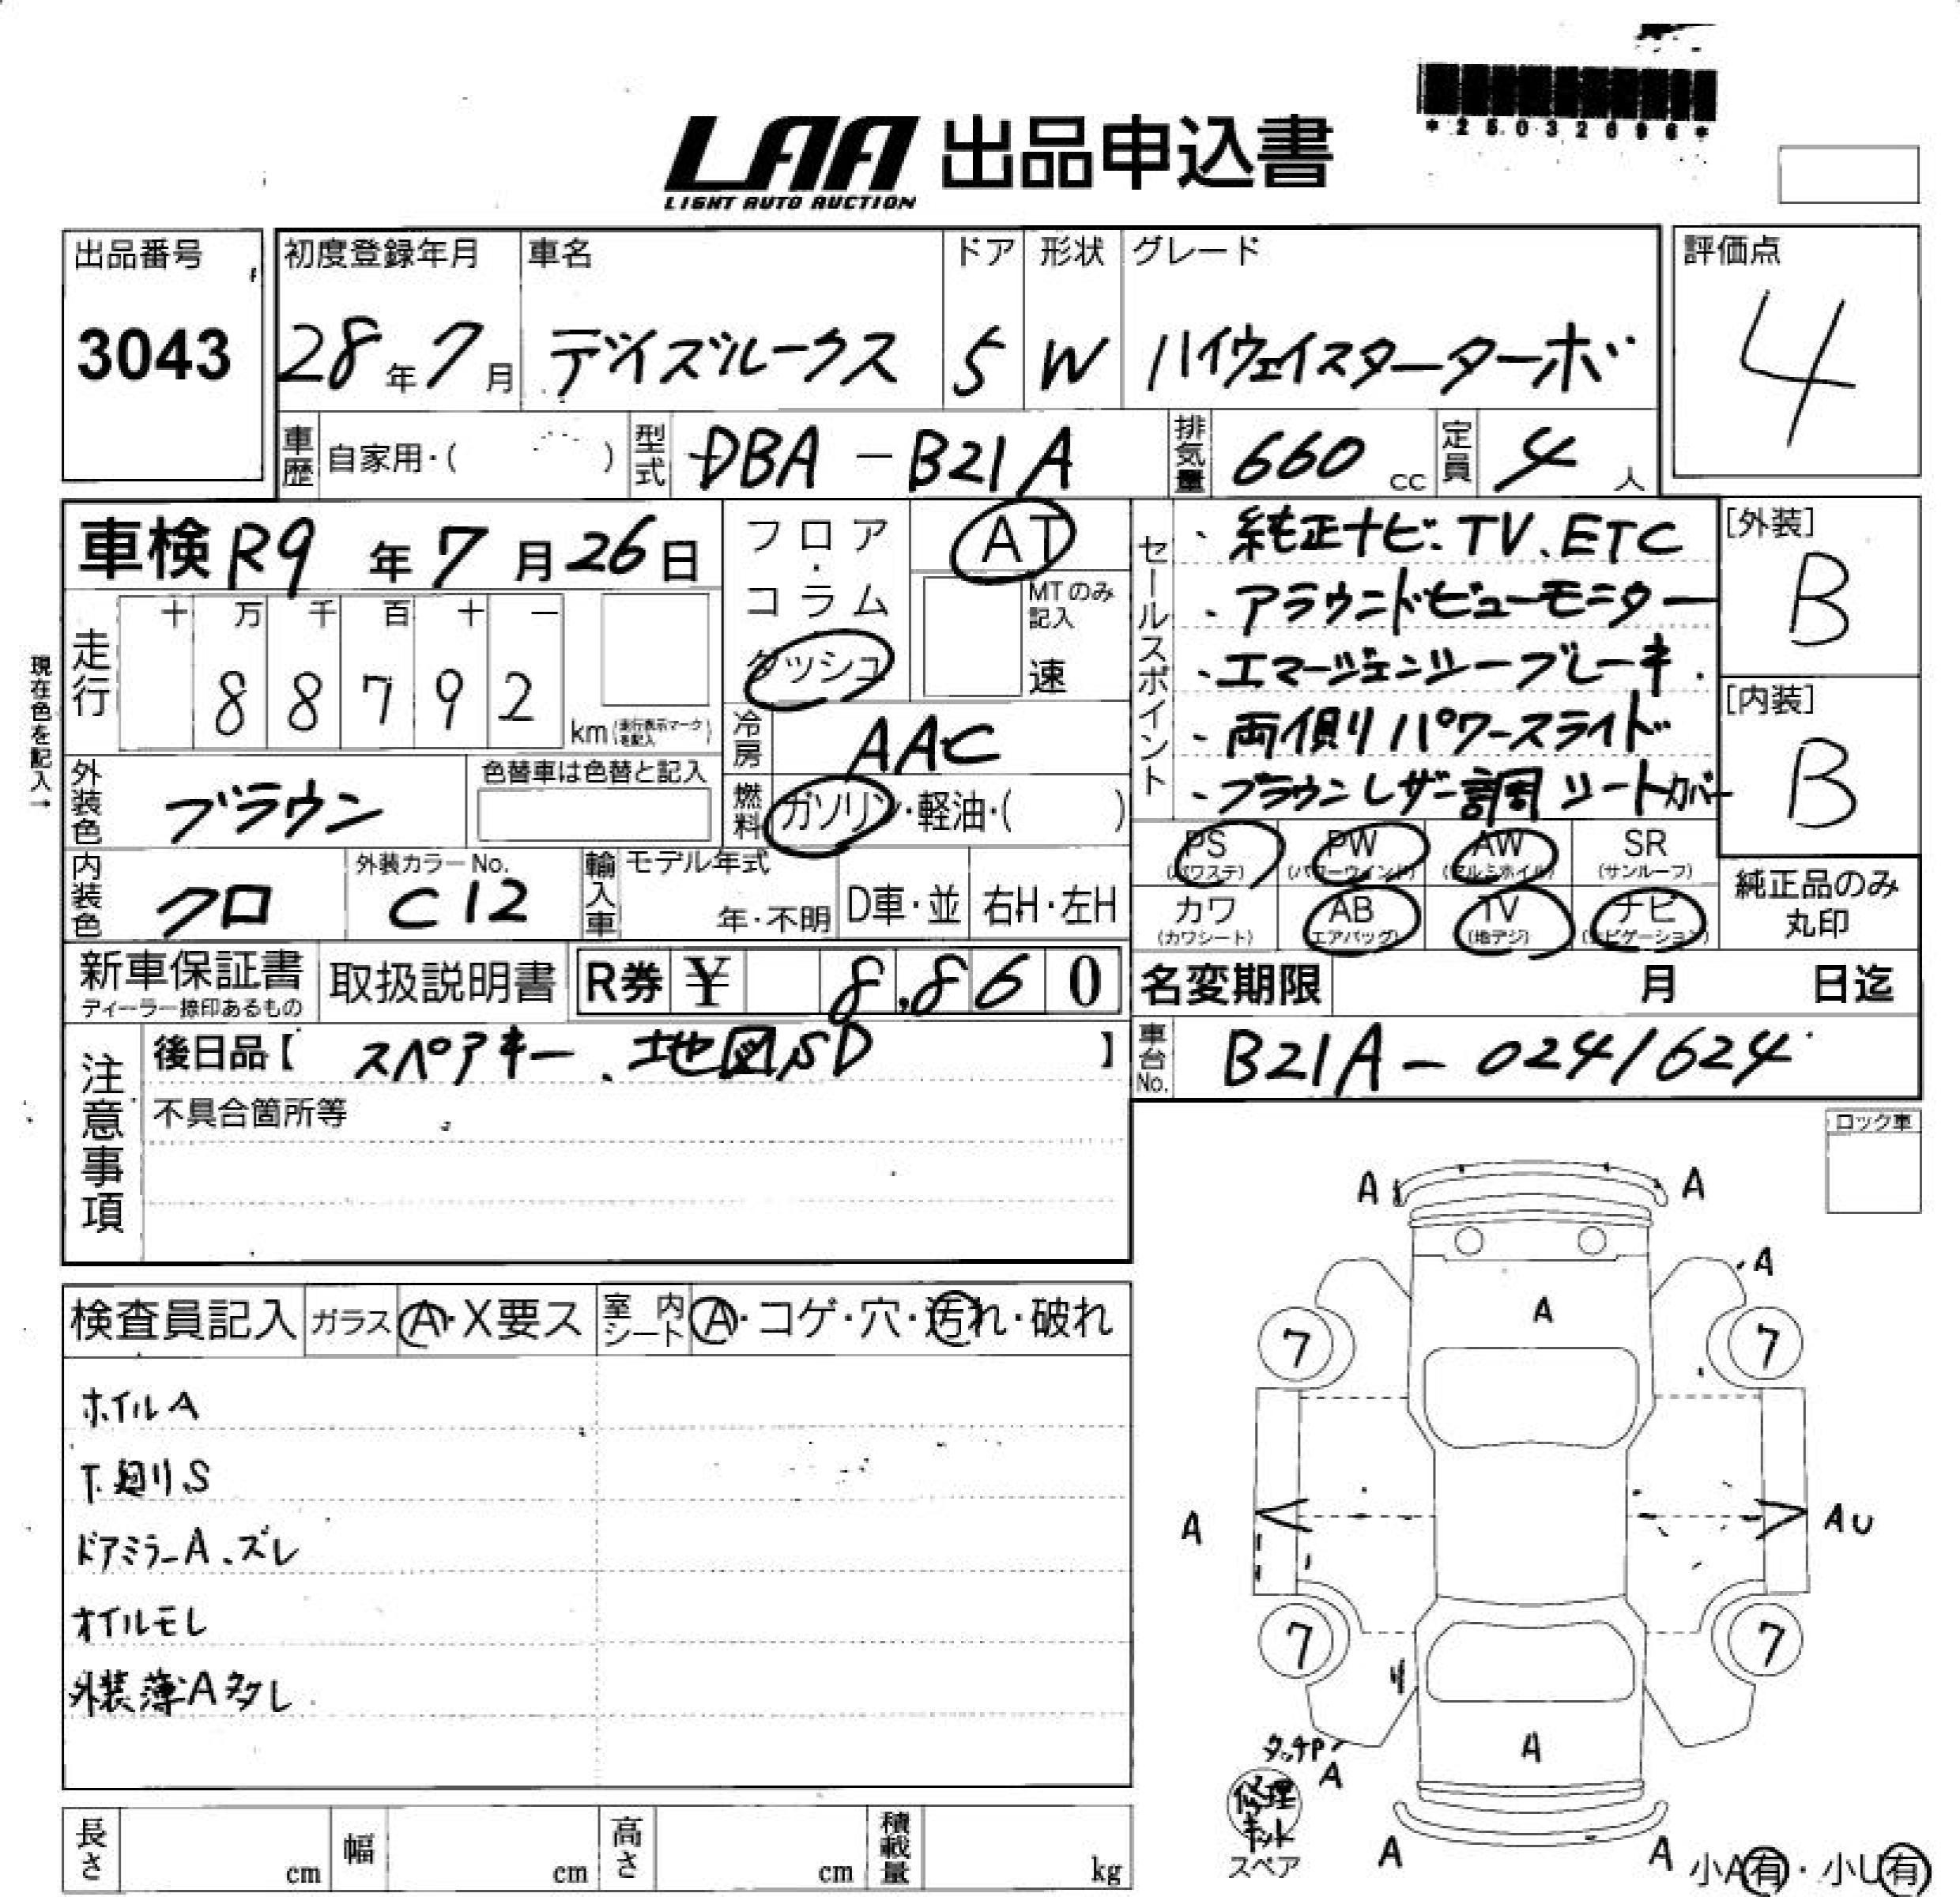 *25032096*
LAA 出品申込書
LIGHT AUTO AUCTION
出品番号
3043
初度登録年月 車名 ドア 形状 グレード
28年7月 デイズルークス 5 W ハイウェイスターターボ
評価点
4
車歴 自家用・( ) 型式 DBA-B21A 排気量 660cc 定員 4人
車検 R9年7月26日
フロア・コラム ダッシュ
AT
MTのみ記入
速
セールスポイント
・純正ナビ、TV、ETC
・アラウンドビューモニター
・エマージェンシーブレーキ
・両側パワースライド
・ブラウンレザー調シートカバー
[外装]
B
[内装]
B
現在色を記入→
走行
十 万 千 百 十 一
88792
km(走行表示マークを記入)
冷房 AAC
外装色 ブラウン
色替車は色替と記入
燃料 ガソリン・軽油・( )
内装色 クロ
外装カラーNo.
C12
輸入車 モデル年式
年・不明 D車・並 右H・左H
PS (パワステ) PW (パワーウインド) AW (アルミホイル) SR (サンルーフ)
カワ (カワシート) AB (エアバッグ) TV (地デジ) ナビ (ナビゲーション)
純正品のみ丸印
新車保証書
ディーラー捺印あるもの
取扱説明書
R券 ¥ 8,860
名変期限 月 日迄
車台No. B21A-0241624
注意事項
後日品【 スペアキー、地図SD 】
不具合箇所等
ロック車
検査員記入 ガラス A・X要ス 室内シート A・コゲ・穴・汚れ・破れ
ホイルA
下廻りS
ドアミラーA、ズレ
オイルモレ
外装薄A多クレ
A A
A
A
7 7
A AU
7 7
A
タッチP
A
修理キット
スペア
A A
小A有・小U有
長さ cm 幅 cm 高さ cm 積載量 kg